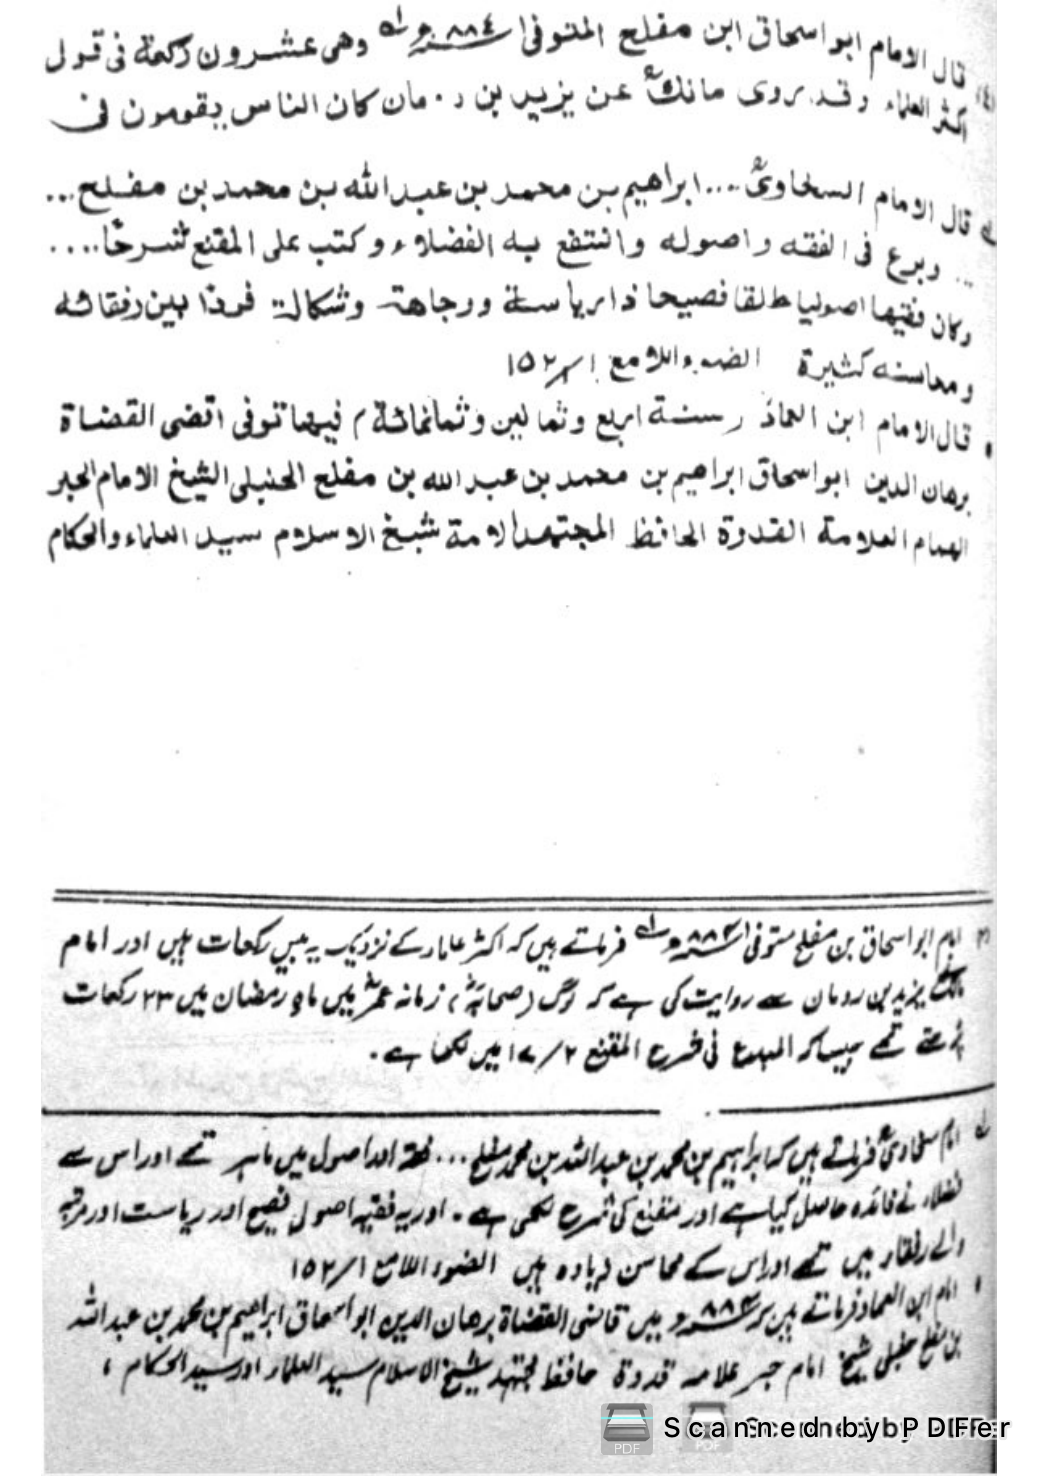 (٤) قال الامام ابو اسحاق ابن مفلح المتوفى ٨٨٤ھ وهى عشرون ركعة فى قول
اكثر العلماء وقد روى مالكؒ عن يزيد بن رومان كان الناس يقومون فى
قال الامام السخاوىؒ .... ابراهيم بن محمد بن عبد الله بن محمد بن مفلح ...
... وبرع فى الفقه واصوله وانتفع به الفضلاء وكتب على المقنع شرحا ....
وكان فقيها اصوليا طلقا فصيحا ذا رياسة ووجاهة وشكالة فردا بين رفقائه
ومحاسنه كثيرة الضوء اللامع ١/١٥٢
• قال الامام ابن العمادؒ سنة اربع وثمانين وثمانمائة / فيها توفى اقضى القضاة
برهان الدين ابو اسحاق ابراهيم بن محمد بن عبد الله بن مفلح الحنبلى الشيخ الامام الحبر
الهمام العلامة القدوة الحافظ المجتهد الامة شيخ الاسلام سيد العلماء والحكام
امام ابو اسحاق بن مفلح متوفى ٨٨٤ھ فرماتے ہیں کہ اکثر علماء کے نزدیک یہ بیس رکعات ہیں اور امام
مالکؒ یزید بن رومان سے روایت کی ہے کہ لوگ (صحابہؓ) زمانہ عمرؓ میں ماہ رمضان میں ٢٣ رکعات
پڑھتے تھے جیساکہ المبدع فی شرح المقنع ٢/١٧ میں لکھا ہے۔
امام سخاویؒ فرماتے ہیں کہ ابراہیم بن محمد بن عبد اللہ بن محمد مفلح ... فقہ اور اصول میں ماہر تھے اور اس سے
فضلاء نے فائدہ حاصل کیا ہے اور مقنع کی شرح لکھی ہے۔ اور یہ فقیہ اصولی فصیح اور ریاست اور مرتبہ
والے رفقاء میں تھے اور اس کے محاسن زیادہ ہیں الضوء اللامع ١/١٥٢
• امام ابن العماد فرماتے ہیں کہ ٨٨٤ھ میں قاضی القضاة برهان الدین ابو اسحاق ابراهیم بن محمد بن عبد اللہ
بن مفلح حنبلی شیخ امام حبر علامہ قدوة حافظ مجتہد شیخ الاسلام سید العلماء اور سید الحکام ،
Scanned by PDFer
Scanned by PDFer